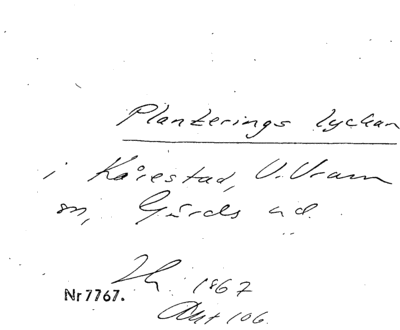 Planterings lyckan
i Kårestad, V. Vram
sn, Gärds hd.
1867
Nr 7767.
Akt 106